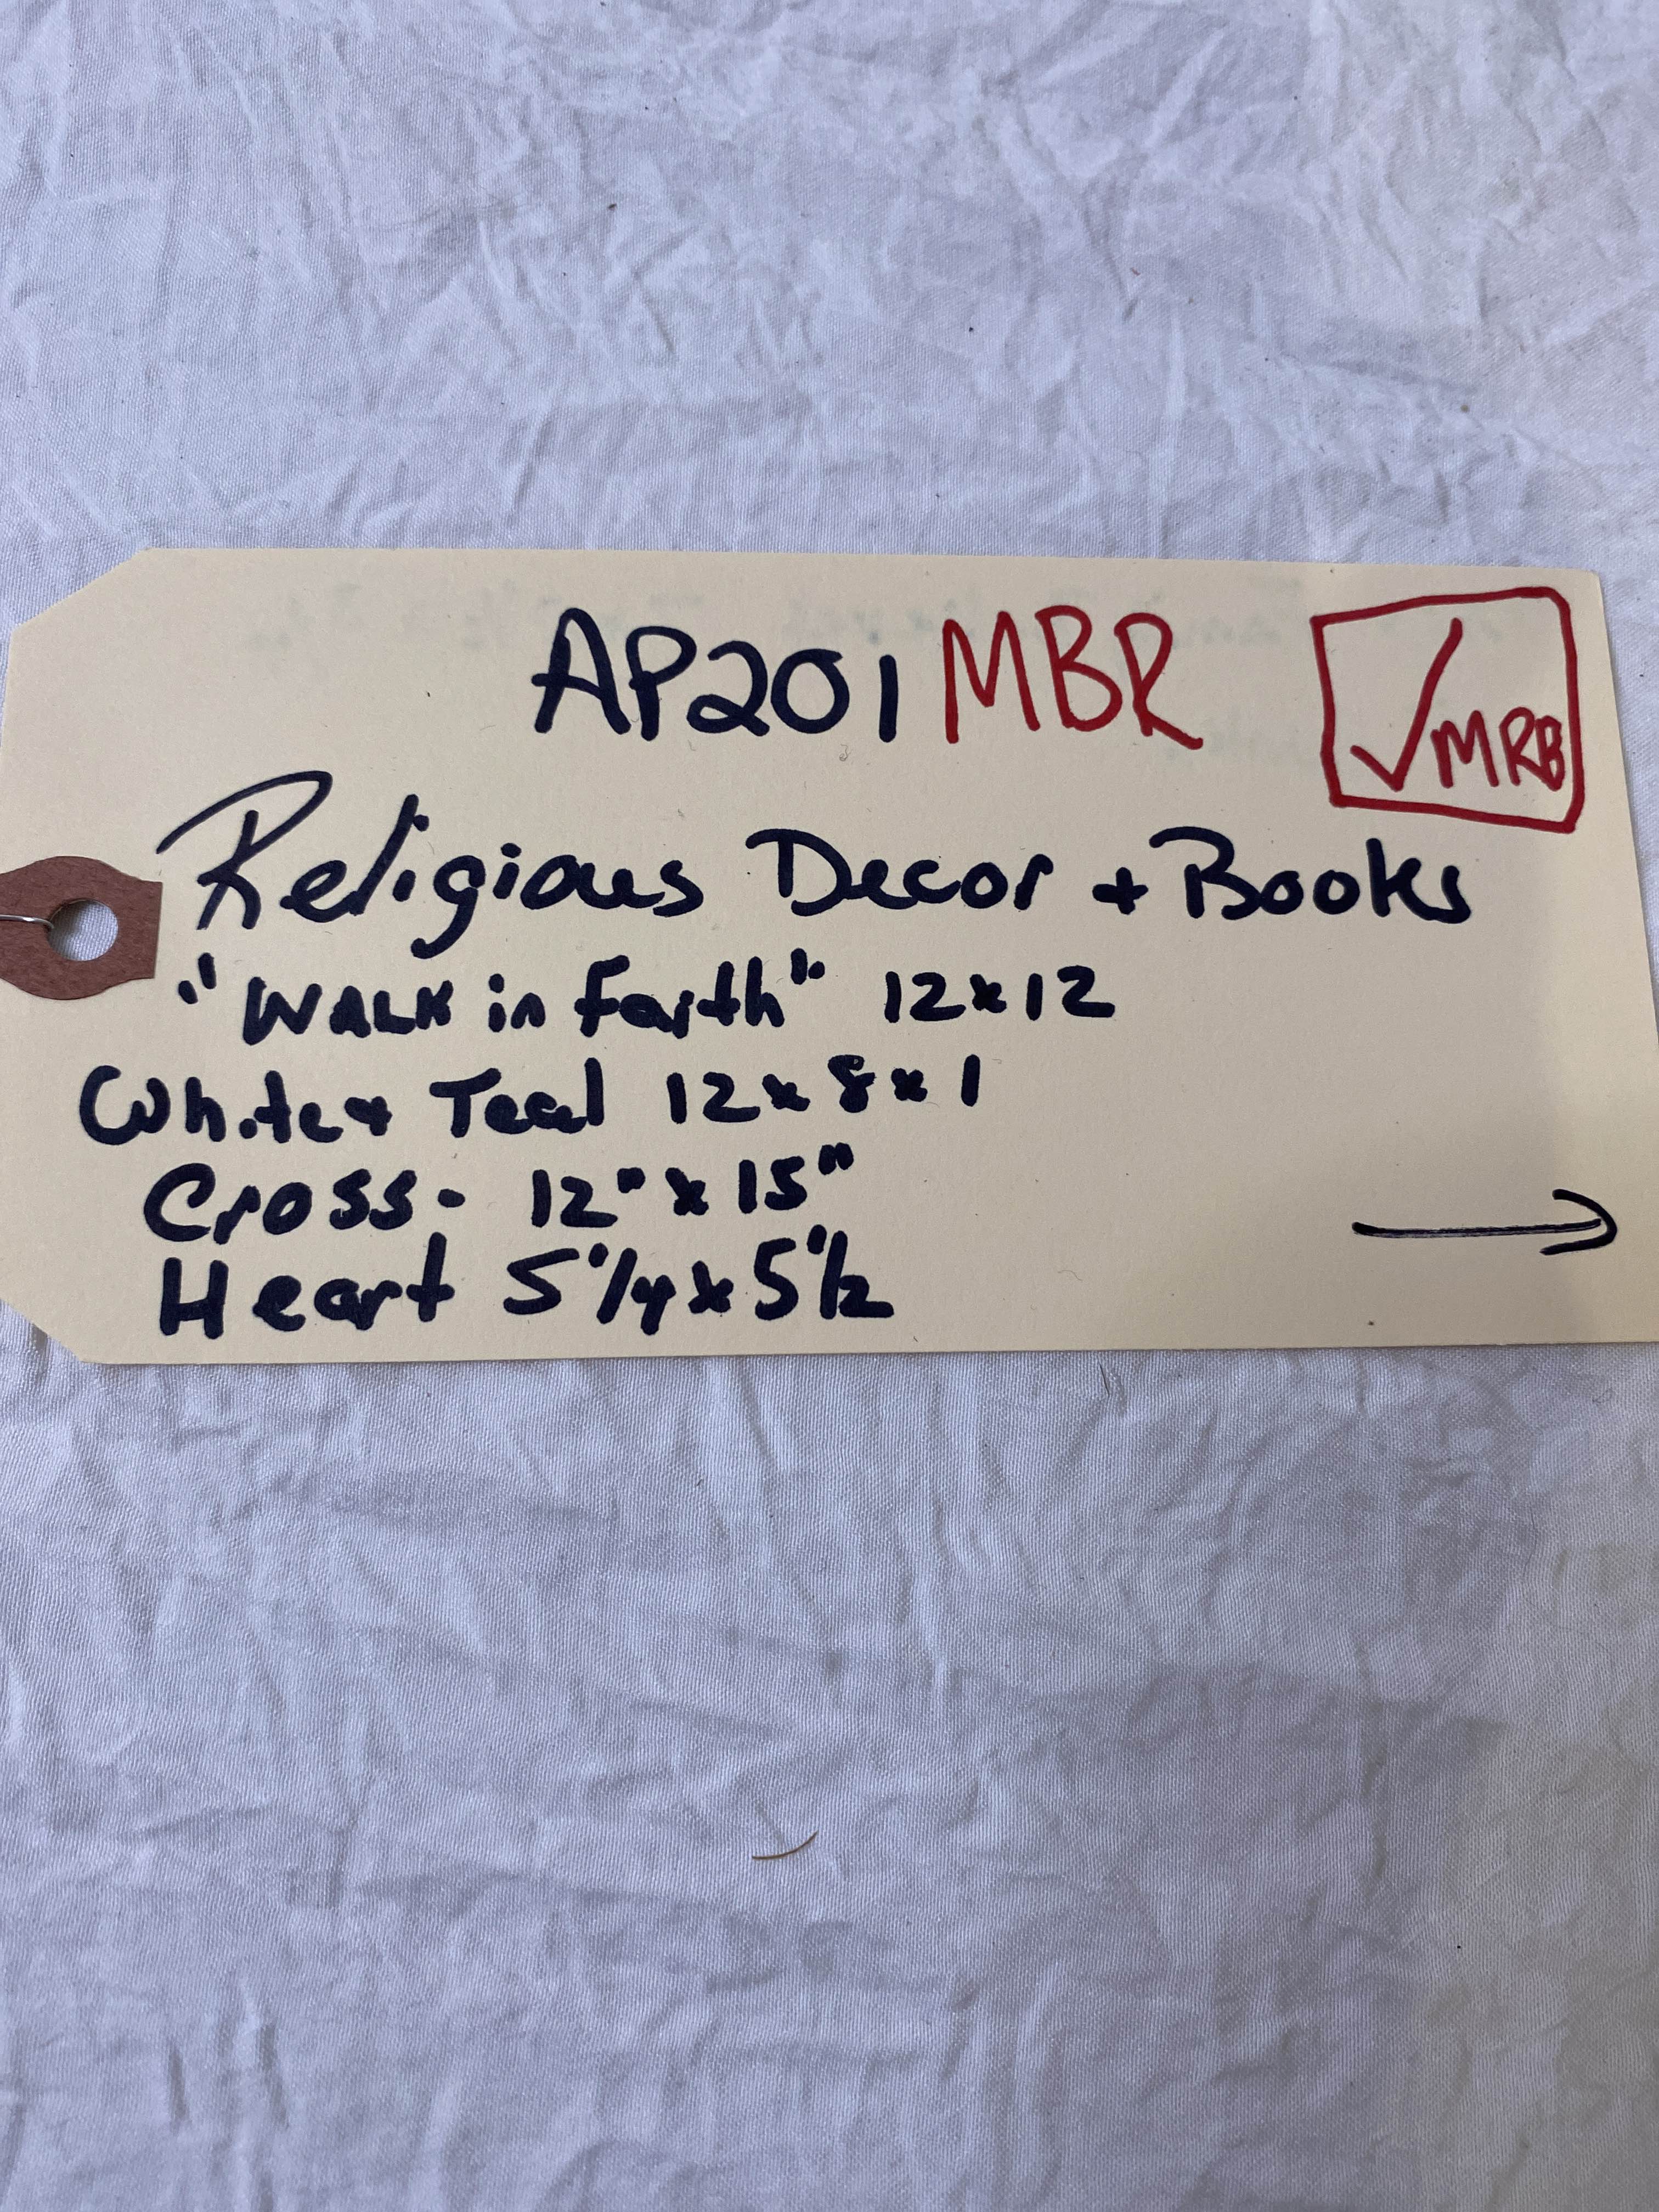 AP201 MBR ✓MRB
Religious Decor + Books
"WALK in faith" 12x12
White + Teal 12x8x1
Cross - 12" x 15"
Heart 5 1/4 x 5 1/2
→